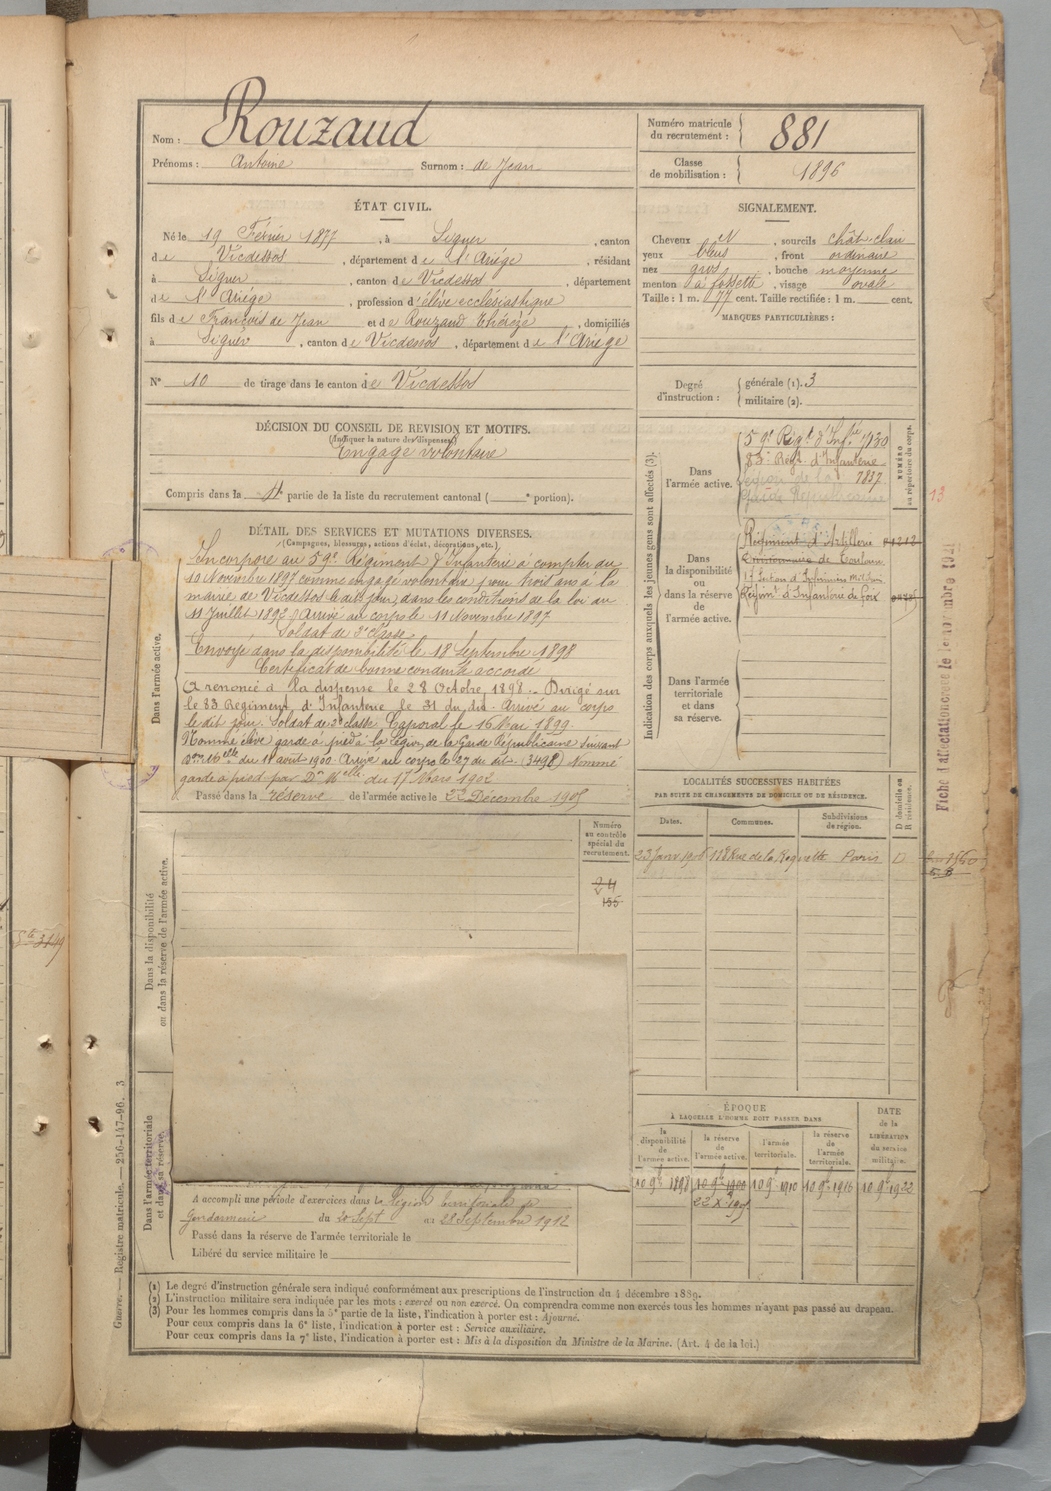 Nom : Rouzaud
Prénoms : Antoine Surnom : de Jean
Numéro matricule du recrutement : 881
Classe de mobilisation : 1896
ÉTAT CIVIL.
Né le 19 Février 1877, à Siguer, canton
de Vicdessos, département de l'Ariége, résidant
à Siguer, canton de Vicdessos, département
de l'Ariége, profession d'élève ecclésiastique
fils de François de Jean et de Rouzaud Thérèze, domiciliés
à Siguer, canton de Vicdessos, département de l'Ariége
N° 10 de tirage dans le canton de Vicdessos
SIGNALEMENT.
Cheveux N, sourcils chât. clair
yeux bleus, front ordinaire
nez gros, bouche moyenne
menton à fossette, visage ovale
Taille : 1 m. 77 cent. Taille rectifiée : 1 m. cent.
MARQUES PARTICULIÈRES :
Degré d'instruction : générale (1). 3
militaire (2).
DÉCISION DU CONSEIL DE REVISION ET MOTIFS.
(Indiquer la nature des dispenses)
Engagé volontaire
Compris dans la 4e partie de la liste du recrutement cantonal ( e portion).
DÉTAIL DES SERVICES ET MUTATIONS DIVERSES.
(Campagnes, blessures, actions d'éclat, décorations, etc.)
Dans l'armée active.
Incorporé au 59e Régiment d'Infanterie à compter du
10 Novembre 1897 comme engagé volontaire pour trois ans à la
mairie de Vicdessos le dit jour, dans les conditions de la loi du
11 Juillet 1892. Arrivé au corps le 11 Novembre 1897
Soldat de 2e classe
Envoyé dans la disponibilité le 18 Septembre 1898
Certificat de bonne conduite accordé
A renoncé à la dispense le 28 Octobre 1898. Dirigé sur
le 83 Régiment d'Infanterie le 31 du dit. Arrivé au corps
le dit jour. Soldat de 2e classe. Caporal le 16 Mai 1899.
Nommé élève garde à pied à la légion de la Garde Républicaine suivant
Don Mlle du 18 août 1900. Arrivé au corps le 27 du dit (3498) Nommé
garde à pied par Dn Melle du 17 Mars 1902
Passé dans la réserve de l'armée active le 22 Décembre 1905
Indication des corps auxquels les jeunes gens sont affectés (3).
NUMÉRO au répertoire du corps.
Dans l'armée active.
59e Régt d'Infie 1130
83e Régt. d'Infanterie 7857
Légion de la Garde Républicaine
13
Dans la disponibilité ou dans la réserve de l'armée active.
Régiment d'Artillerie
de Toulouse
17 Section d'Infirmiers Milit.
Régimt d'Infanterie de Foix
Dans l'armée territoriale et dans sa réserve.
LOCALITÉS SUCCESSIVES HABITÉES
PAR SUITE DE CHANGEMENTS DE DOMICILE OU DE RÉSIDENCE.
Dates. Communes. Subdivisions de région. D domicile ou R résidence.
23 Janv. 1906 118 Rue de la Roquette Paris D
Numéro au contrôle spécial du recrutement.
24
155
Dans la disponibilité ou dans la réserve de l'armée active.
Dans l'armée territoriale et dans sa réserve.
A accompli une période d'exercices dans la Légion territoriale de
Gendarmerie du 20 Sept au 28 Septembre 1912
Passé dans la réserve de l'armée territoriale le
Libéré du service militaire le
ÉPOQUE
À LAQUELLE L'HOMME DOIT PASSER DANS
la disponibilité de l'armée active. la réserve de l'armée active. l'armée territoriale. la réserve de l'armée territoriale.
DATE de la LIBÉRATION du service militaire.
10 9bre 1898 10 9bre 1900 10 9bre 1910 10 9bre 1916 10 9bre 1922
22 Xbre 1905
(1) Le degré d'instruction générale sera indiqué conformément aux prescriptions de l'instruction du 4 décembre 1889.
(2) L'instruction militaire sera indiquée par les mots : exercé ou non exercé. On comprendra comme non exercés tous les hommes n'ayant pas passé au drapeau.
(3) Pour les hommes compris dans la 5e partie de la liste, l'indication à porter est : Ajourné.
Pour ceux compris dans la 6e liste, l'indication à porter est : Service auxiliaire.
Pour ceux compris dans la 7e liste, l'indication à porter est : Mis à la disposition du Ministre de la Marine. (Art. 4 de la loi.)
Guerre. — Registre matricule. — 256-147-96. 3